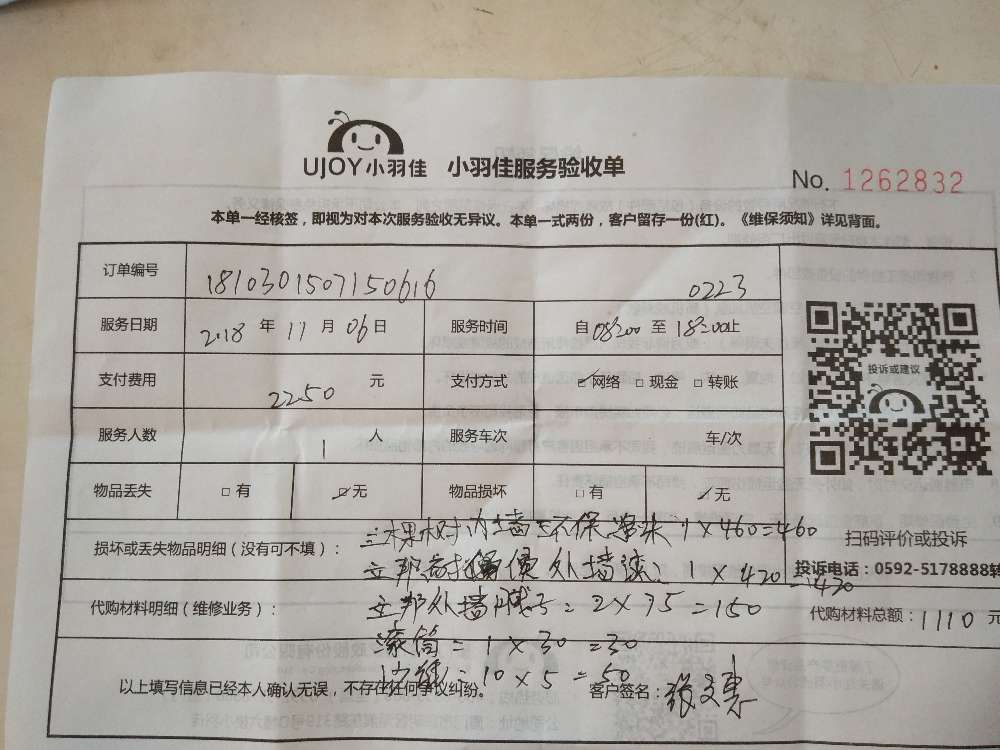 UJOY小羽佳 小羽佳服务验收单
No. 1262832
本单一经核签，即视为对本次服务验收无异议。本单一式两份，客户留存一份(红)。《维保须知》详见背面。
订单编号 1810301507150616 0223
服务日期 2018 年 11 月 06 日 服务时间 自 08:00 至 18:00 止
支付费用 2250 元 支付方式 网络 现金 转账
投诉或建议
服务人数 1 人 服务车次 车/次
物品丢失 有 无 物品损坏 有 无
三棵树内墙环保 1×460=460
损坏或丢失物品明细（没有可不填）：
扫码评价或投诉
立邦 外墙漆: 1×420=420
投诉电话：0592-5178888转
代购材料明细（维修业务）：
立邦外墙腻子=2×75=150
代购材料总额：1110 元
滚筒=1×30=30
10×5=50
以上填写信息已经本人确认无误，不存在任何争议纠纷。 客户签名：张文惠